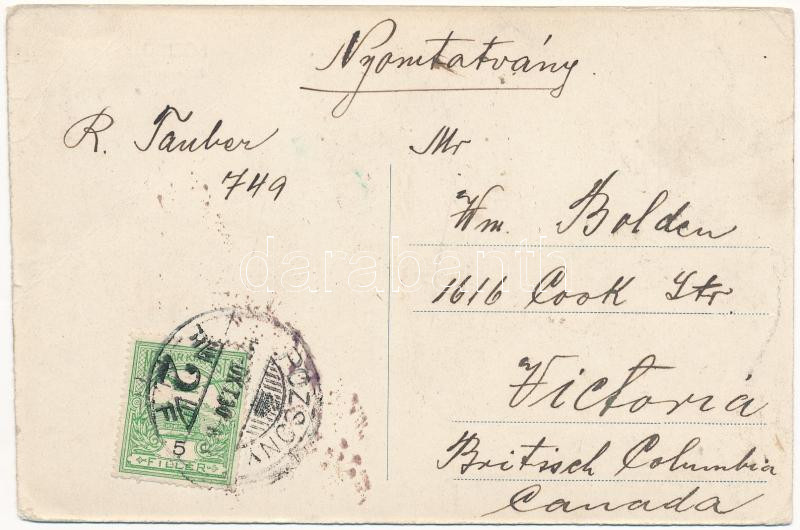 Nyomtatvány
R. Tauber
749
Mr
Wm. Bolden
1616 Cook Str
Victoria
Britisch Columbia
Canada
darabanth
POZSONY
OKT. 30
5
FILLÉR